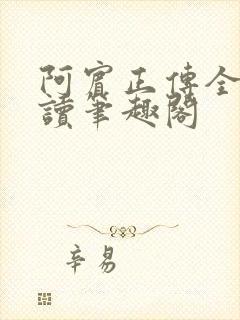 阿賓正傳全
讀筆趣閣
辛易